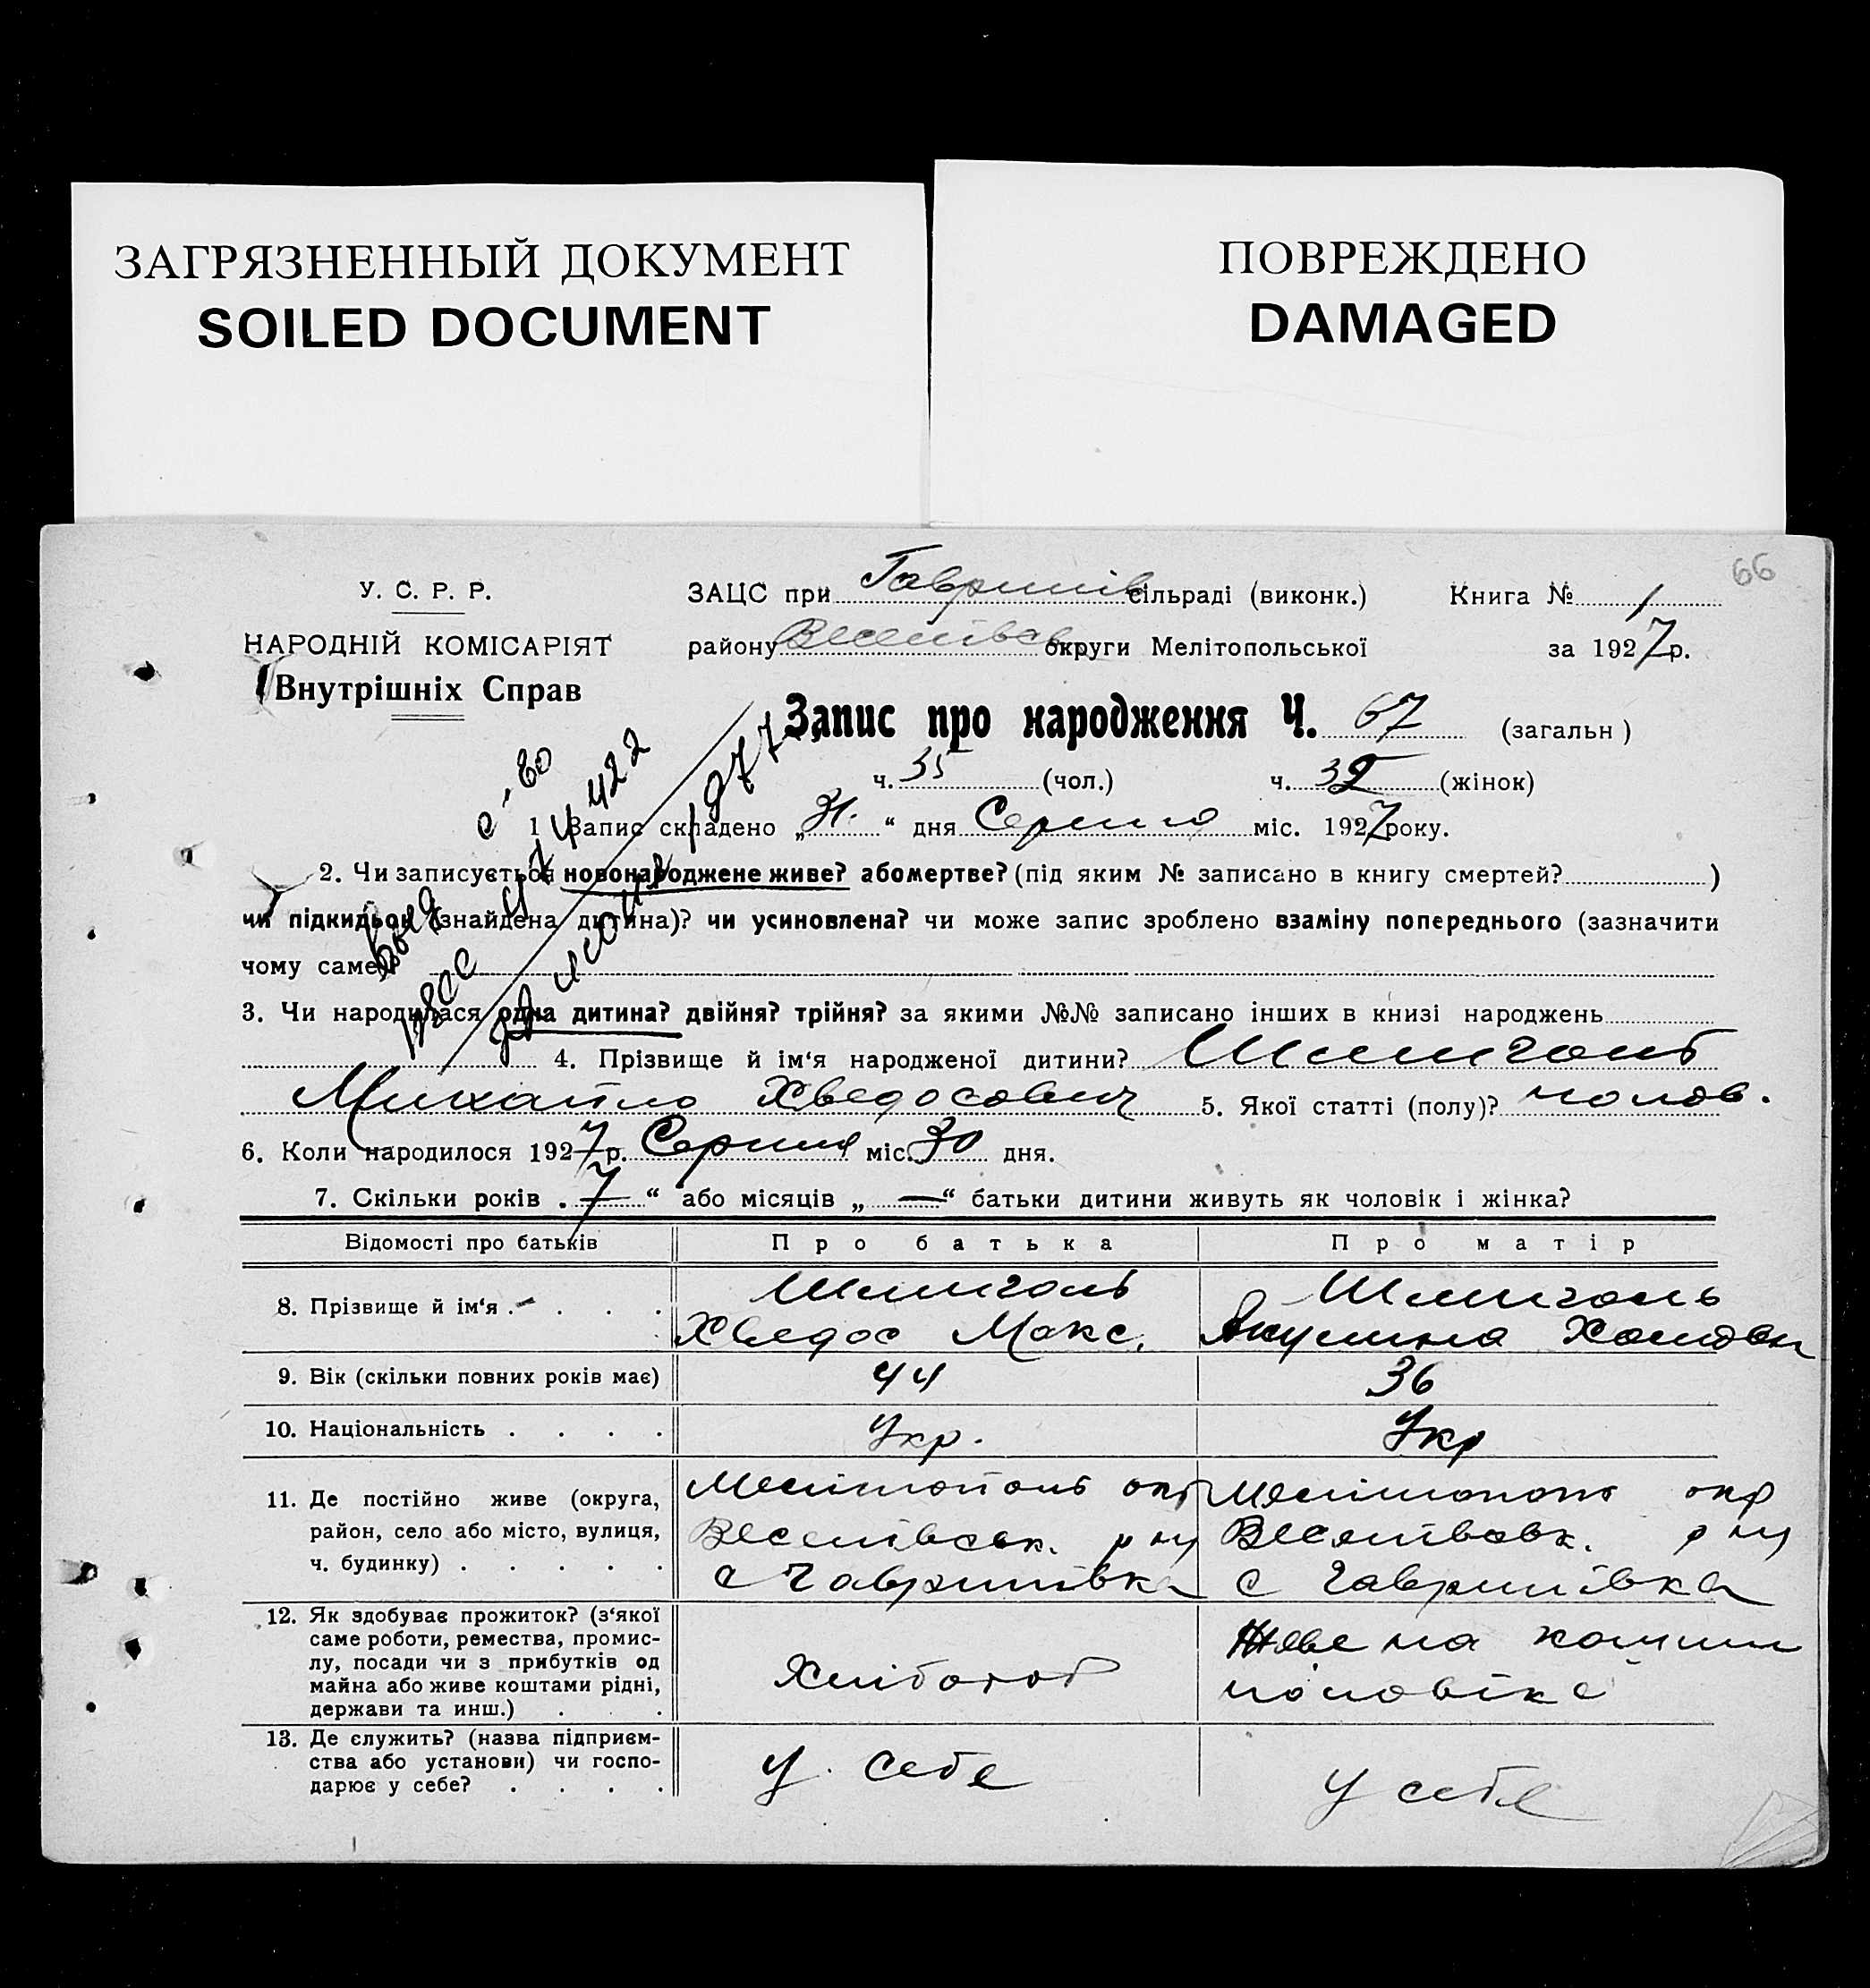 ЗАГРЯЗНЕННЫЙ ДОКУМЕНТ
SOILED DOCUMENT
ПОВРЕЖДЕНО
DAMAGED
66
У. С. Р. Р.
НАРОДНІЙ КОМІСАРІЯТ
Внутрішніх Справ
ЗАЦС при Гаврилів сільраді (виконк.) Книга № 1
району Веселівск округи Мелітопольської за 1927 р.
Запис про народження Ч. 67 (загальн)
ч. 35 (чол.) ч. 32 (жінок)
1 Запис складено „31.“ дня Серпня міс. 1927 року.
2. Чи записується новонароджене живе? або мертве? (під яким № записано в книгу смертей? )
чи підкидьок (знайдена дитина)? чи усиновлена? чи може запис зроблено взаміну попереднього (зазначити
чому саме)?
3. Чи народилася одна дитина? двійня? трійня? за якими №№ записано інших в книзі народжень
4. Прізвище й ім‘я народженої дитини? Шмиголь
Михайло Хведосович 5. Якої статті (полу)? чолов.
6. Коли народилося 1927 р. Серпня міс. 30 дня.
7. Скільки років „7“ або місяців „—“ батьки дитини живуть як чоловік і жінка?
Відомості про батьків Про батька Про матір
8. Прізвище й ім‘я . . . . Шмиголь Хведос Макс. Шмиголь Акулина
9. Вік (скільки повних років має) 44 36
10. Національність . . . . Укр. Укр
11. Де постійно живе (округа, Мелітополь окр Мелітополь окр
район, село або місто, вулиця, Веселівськ. р ну Веселівськ. р ну
ч. будинку) . . . . . с Гаврилівка с Гаврилівка
12. Як здобуває прожиток? (з‘якої
саме роботи, ремества, промис- Живе на кошти
лу, посади чи з прибутків од Хлібороб чоловіка
майна або живе коштами рідні,
держави та инш.) . . .
13. Де служить? (назва підприєм-
ства або установи) чи госпо- у себе у себе
дарює у себе? . . . .